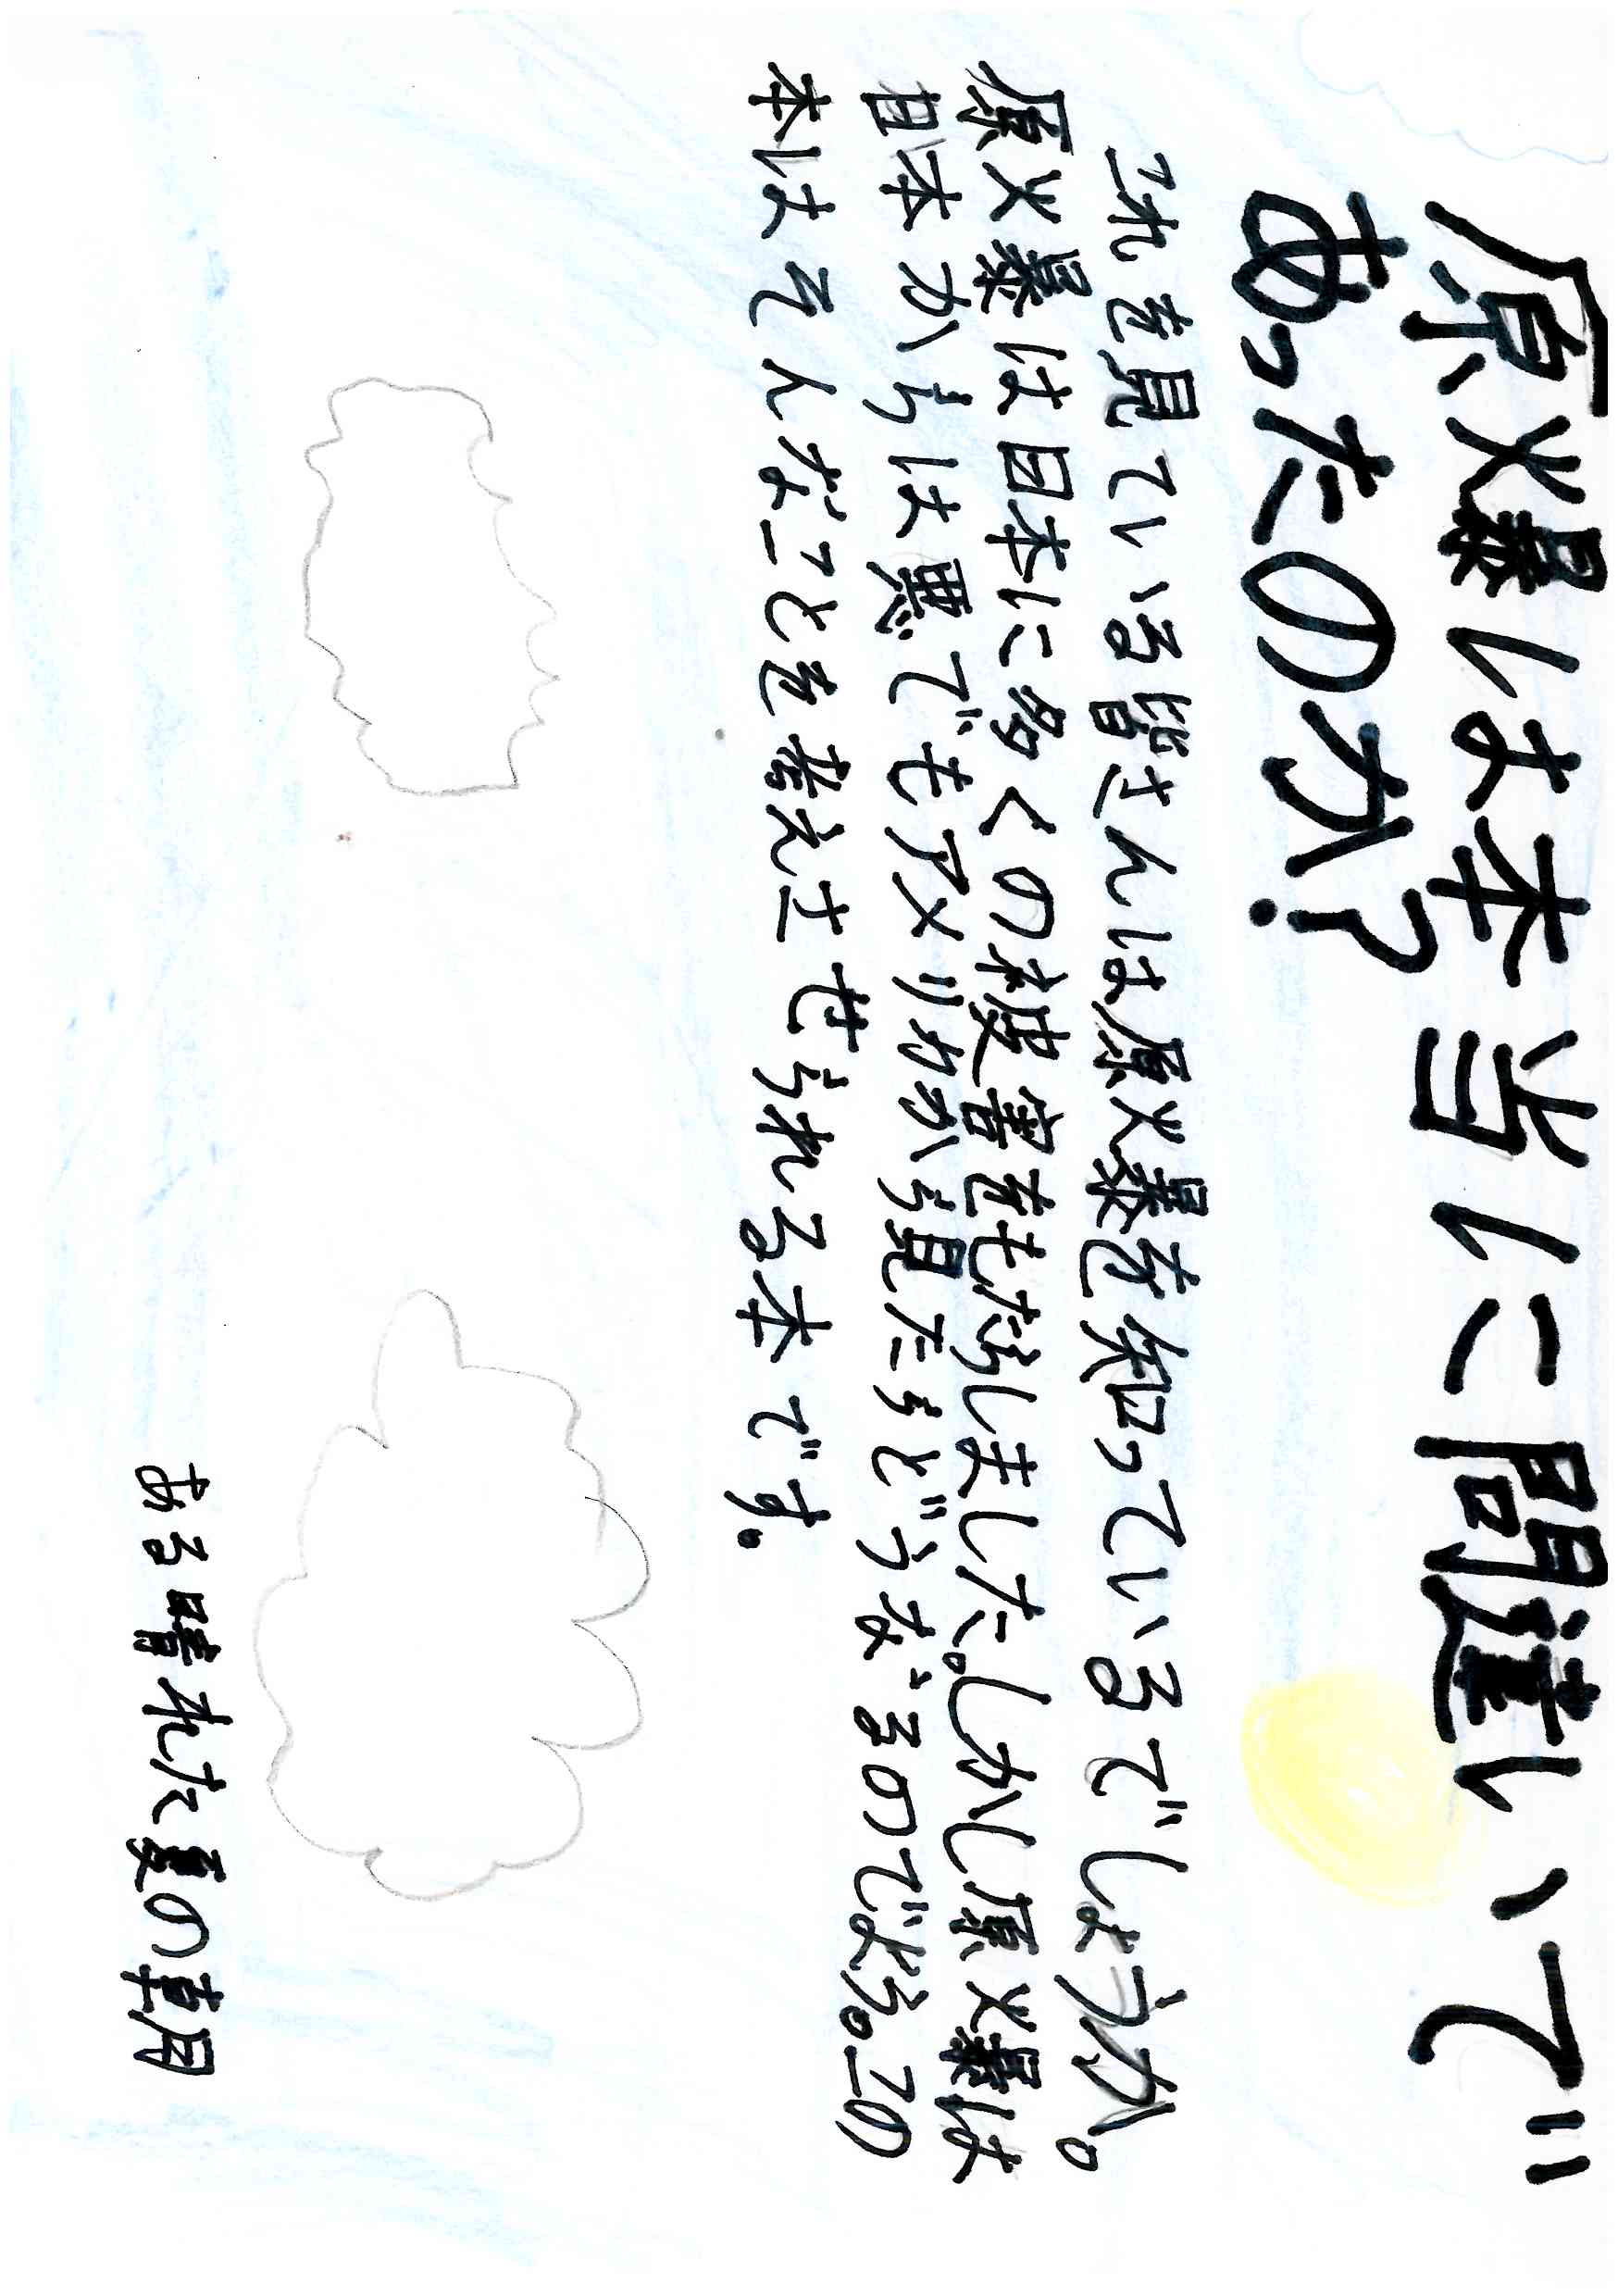 原爆は本当に間違いで
あったのか?
これを見ている皆さんは原爆を知っているでしょうか。
原爆は日本に多くの被害をもたらしました。しかし原爆は
日本からは悪でもアメリカから見たらどうなるのでよう。この
本はそんなことを考えさせられる本です。
ある晴れた夏の朝